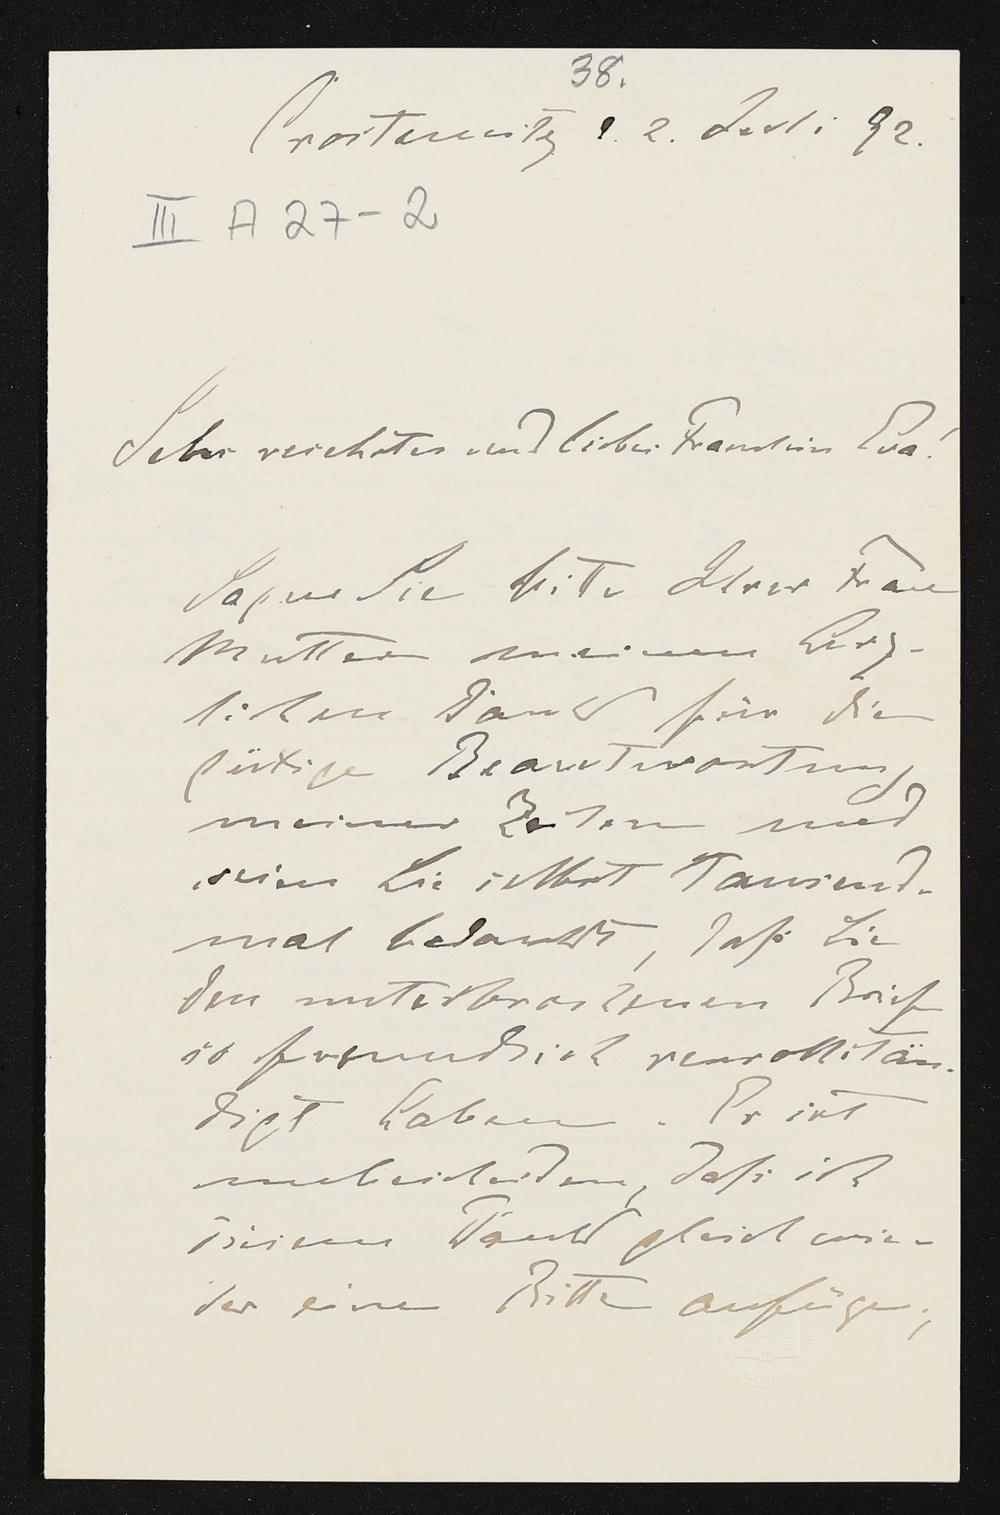 38.
Crostewitz d. 2. Juli 92.
III A 27-2
Sehr verehrtes und liebes Fräulein Eva!
Sagen Sie bitte Ihrer Frau
Mutter meinen herz-
lichen Dank für die
gütige Beantwortung
meiner Zeilen und
seien Sie selbst tausend-
mal bedankt, daß Sie
den unterbrochenen Brief
so freundlich vervollstän-
digt haben. Es ist
unbescheiden, daß ich
diesem Dank gleich wie-
der eine Bitte anfüge,